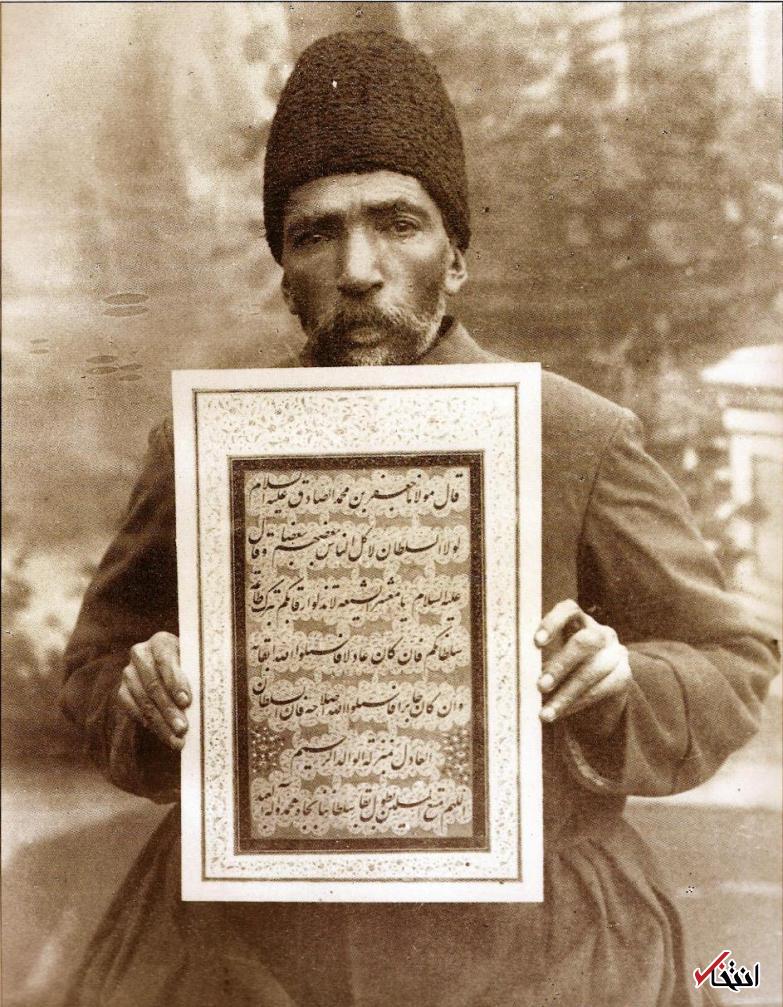 قال مولانا جعفر بن محمد الصادق علیه السلام
لولا السلطان لاکل الناس بعضهم بعضا وقال
علیه السلام یا معشر الشیعه لا تذلوا رقابکم بترک طاعة
سلطانکم فان کان عادلا فاسئلوا الله ابقائه
وان کان جایرا فاسئلوا الله صلاحه فان السلطان
العادل بمنزلة الوالد الرحیم
اللهم متع المسلمین بطول بقاء سلطاننا بجاه محمد وآله
انتخاب